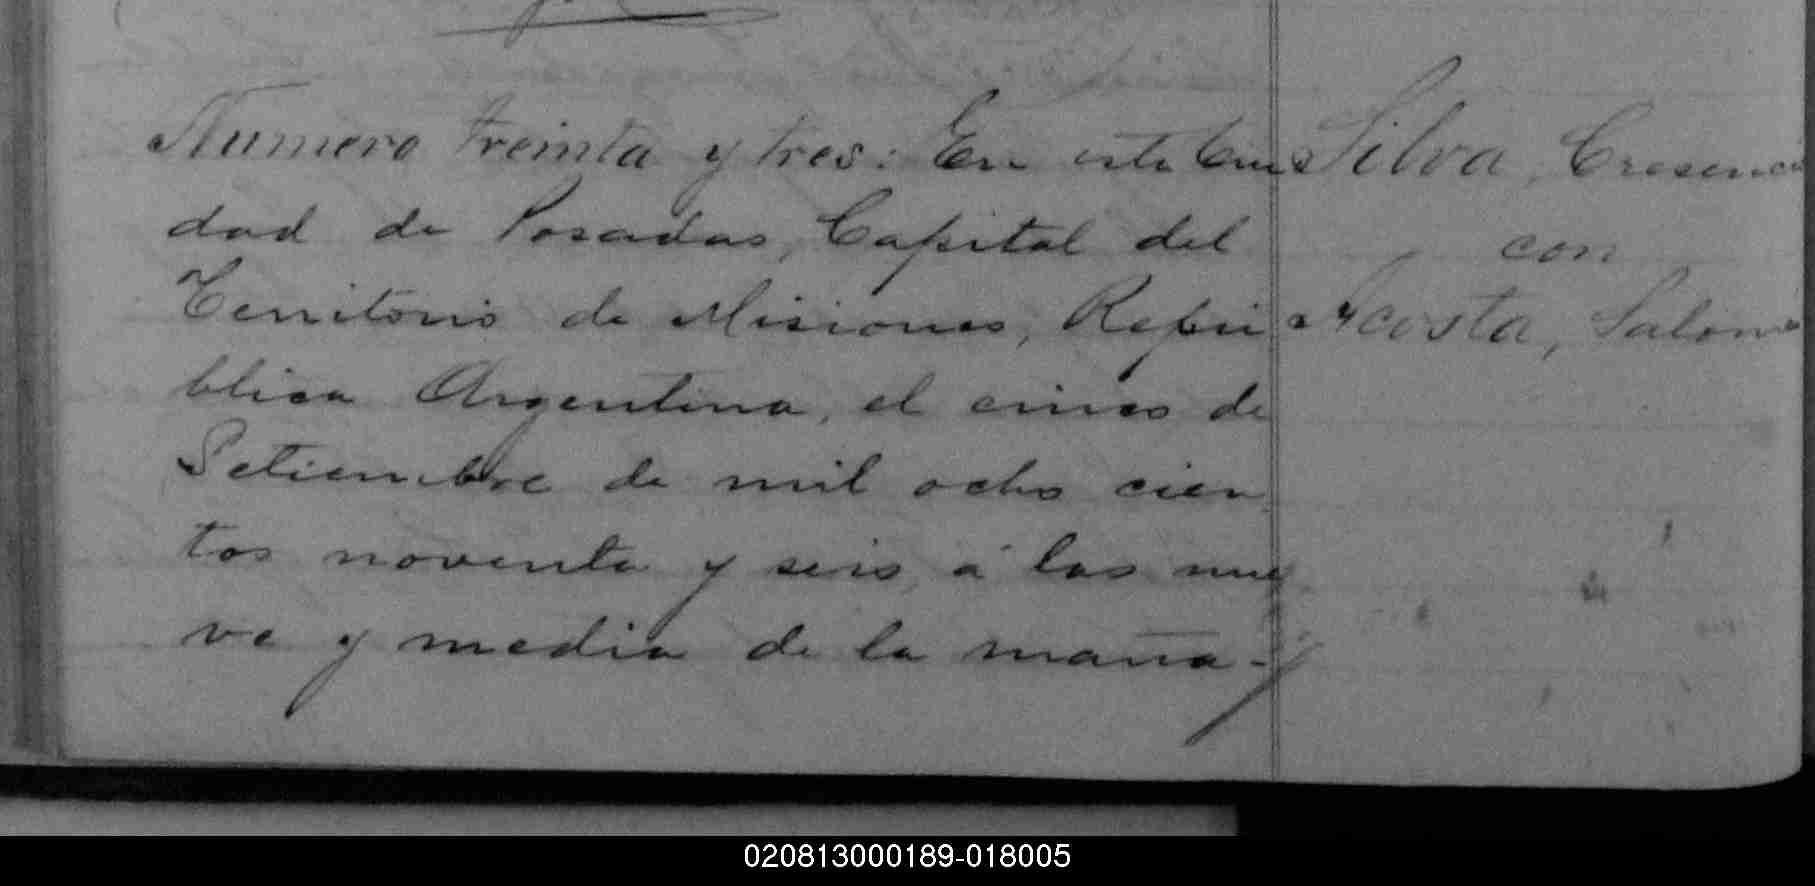 Numero treinta y tres: En esta Ciu
dad de Posadas, Capital del
Territorio de Misiones, Repú
blica Argentina, el cinco de
Setiembre de mil ocho cien
tos noventa y seis, á las nue
ve y media de la maña-
Silva, Cresenci
con
Acosta, Salomé
020813000189-018005